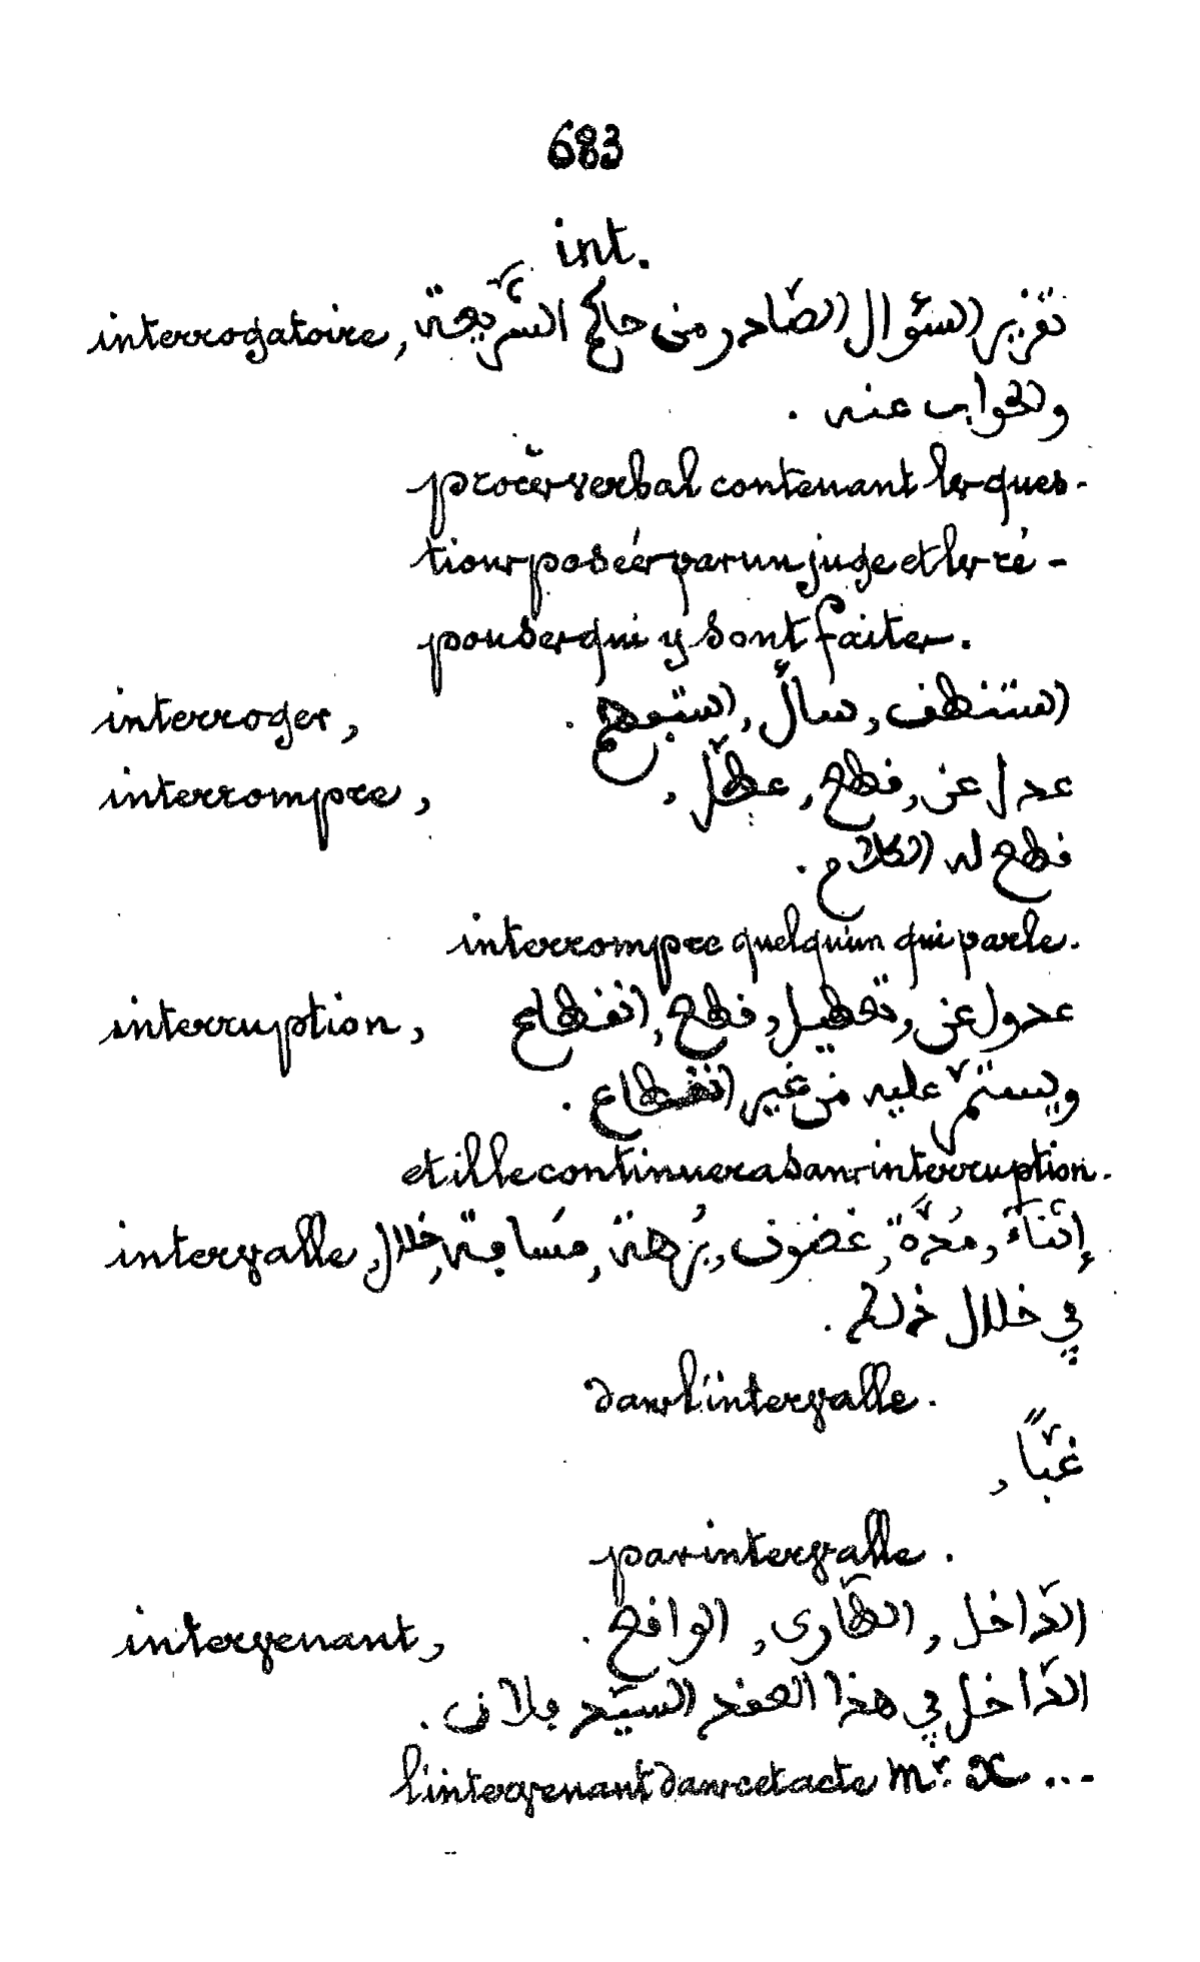 683
int.
interrogatoire, تقرير السؤال الصّادر من حاكم الشّريعة
والجواب عنه .
procès verbal contenant les ques-
tions posées par un juge et les ré-
ponses qui y sont faites.
interroger, استنطق، سأل، استفهم .
interrompre, عدل عن، قطع، عطّل،
قطع له الكلام .
interrompre quelqu'un qui parle.
interruption, عدول عن، تعطيل، قطع، انقطاع
ويستمرّ عليه من غير انقطاع .
et il le continuera sans interruption.
intervalle, إثناء، مُدّة، غضون، بُرهة، مَسافة، خلال
في خلال ذلك .
dans l'intervalle.
غبّاً ,
par intervalle.
intervenant, الدّاخل، الطّارى، الواقع .
الدّاخل في هذا العقد السيّد فلان .
l'intervenant dans cet acte Mr. X...